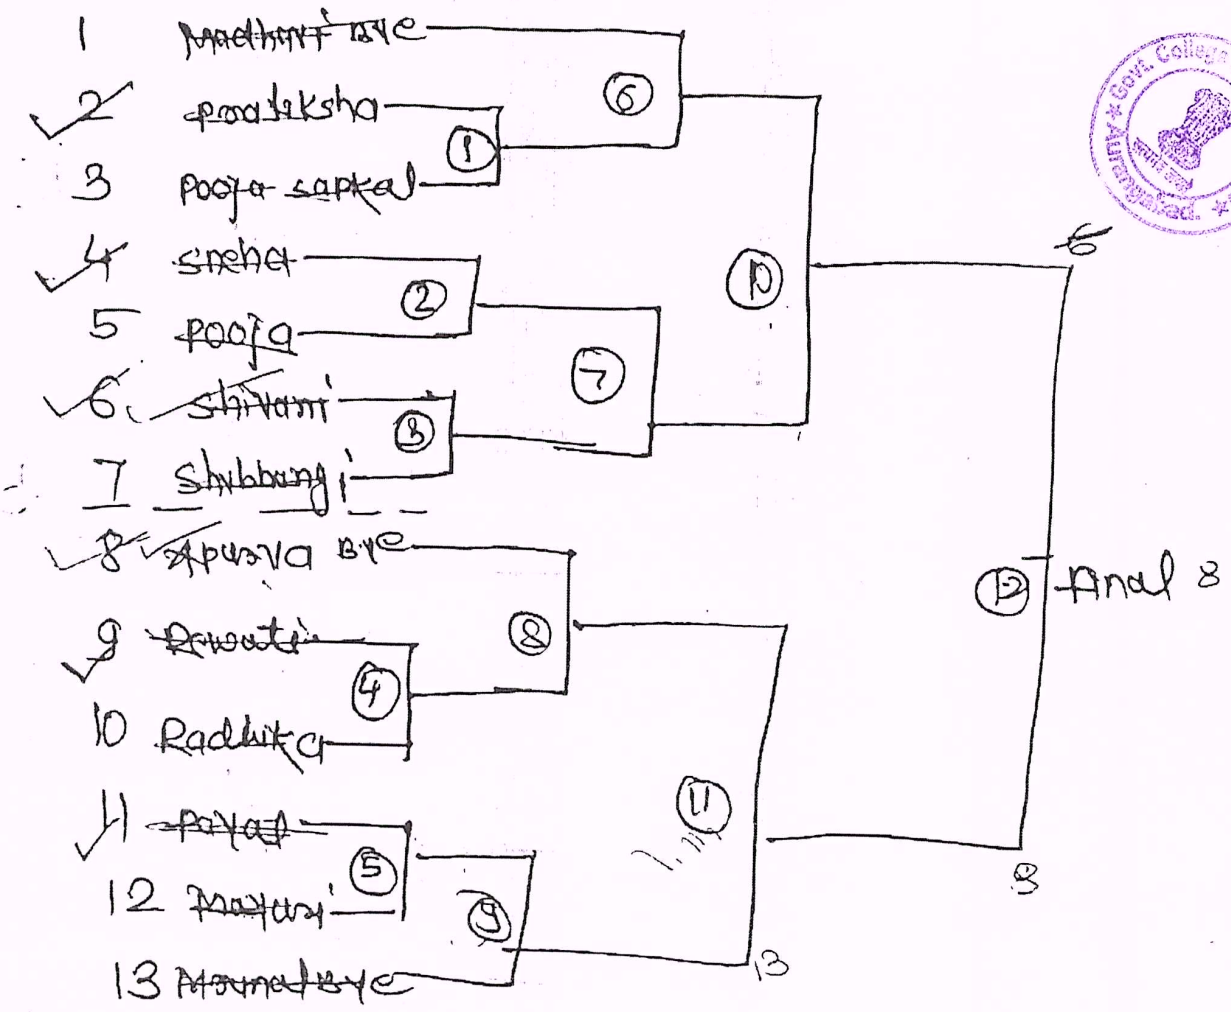 1 Madhuri Bye
2 Pratiksha
3 Pooja sapkal
4 sneha
5 Pooja
6. Shivani
7 Shubhangi
8 Apurva Bye
9 Revati
10 Radhika
11 Payal
12 Mayuri
13 Bye
1
2
3
4
5
6
7
8
9
10
11
12
6
13
8
Final 8
Govt. College
Aurangabad.